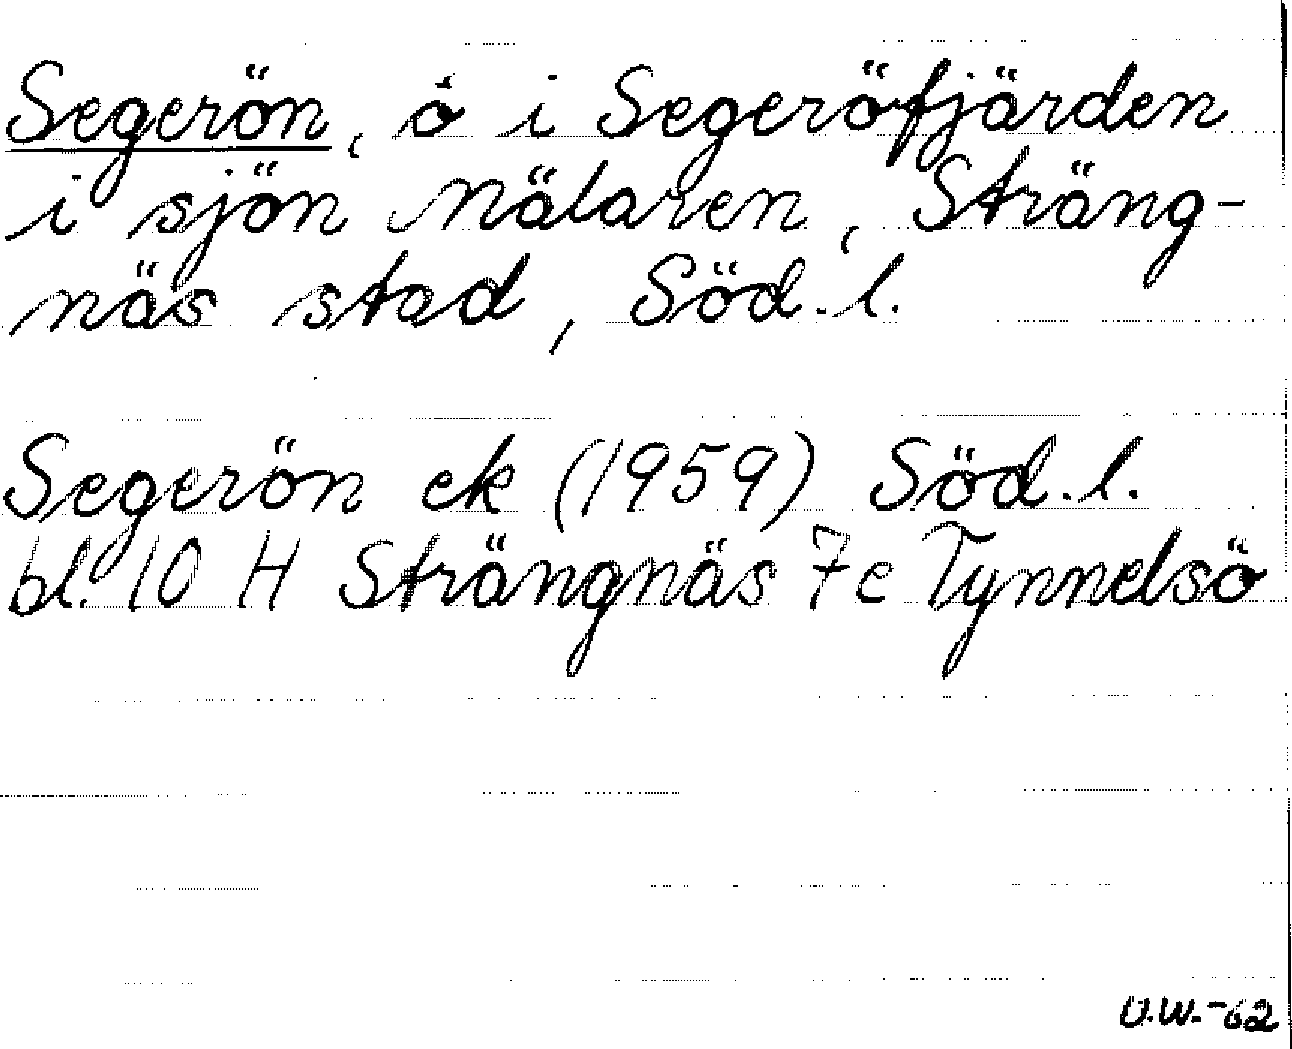 Segerön, ö i Segeröfjärden
i sjön Mälaren, Sträng-
näs stad, Söd.l.
Segerön ek (1959) Söd.l.
bl. 10 H Strängnäs 7e Tynnelsö
U.W.-62